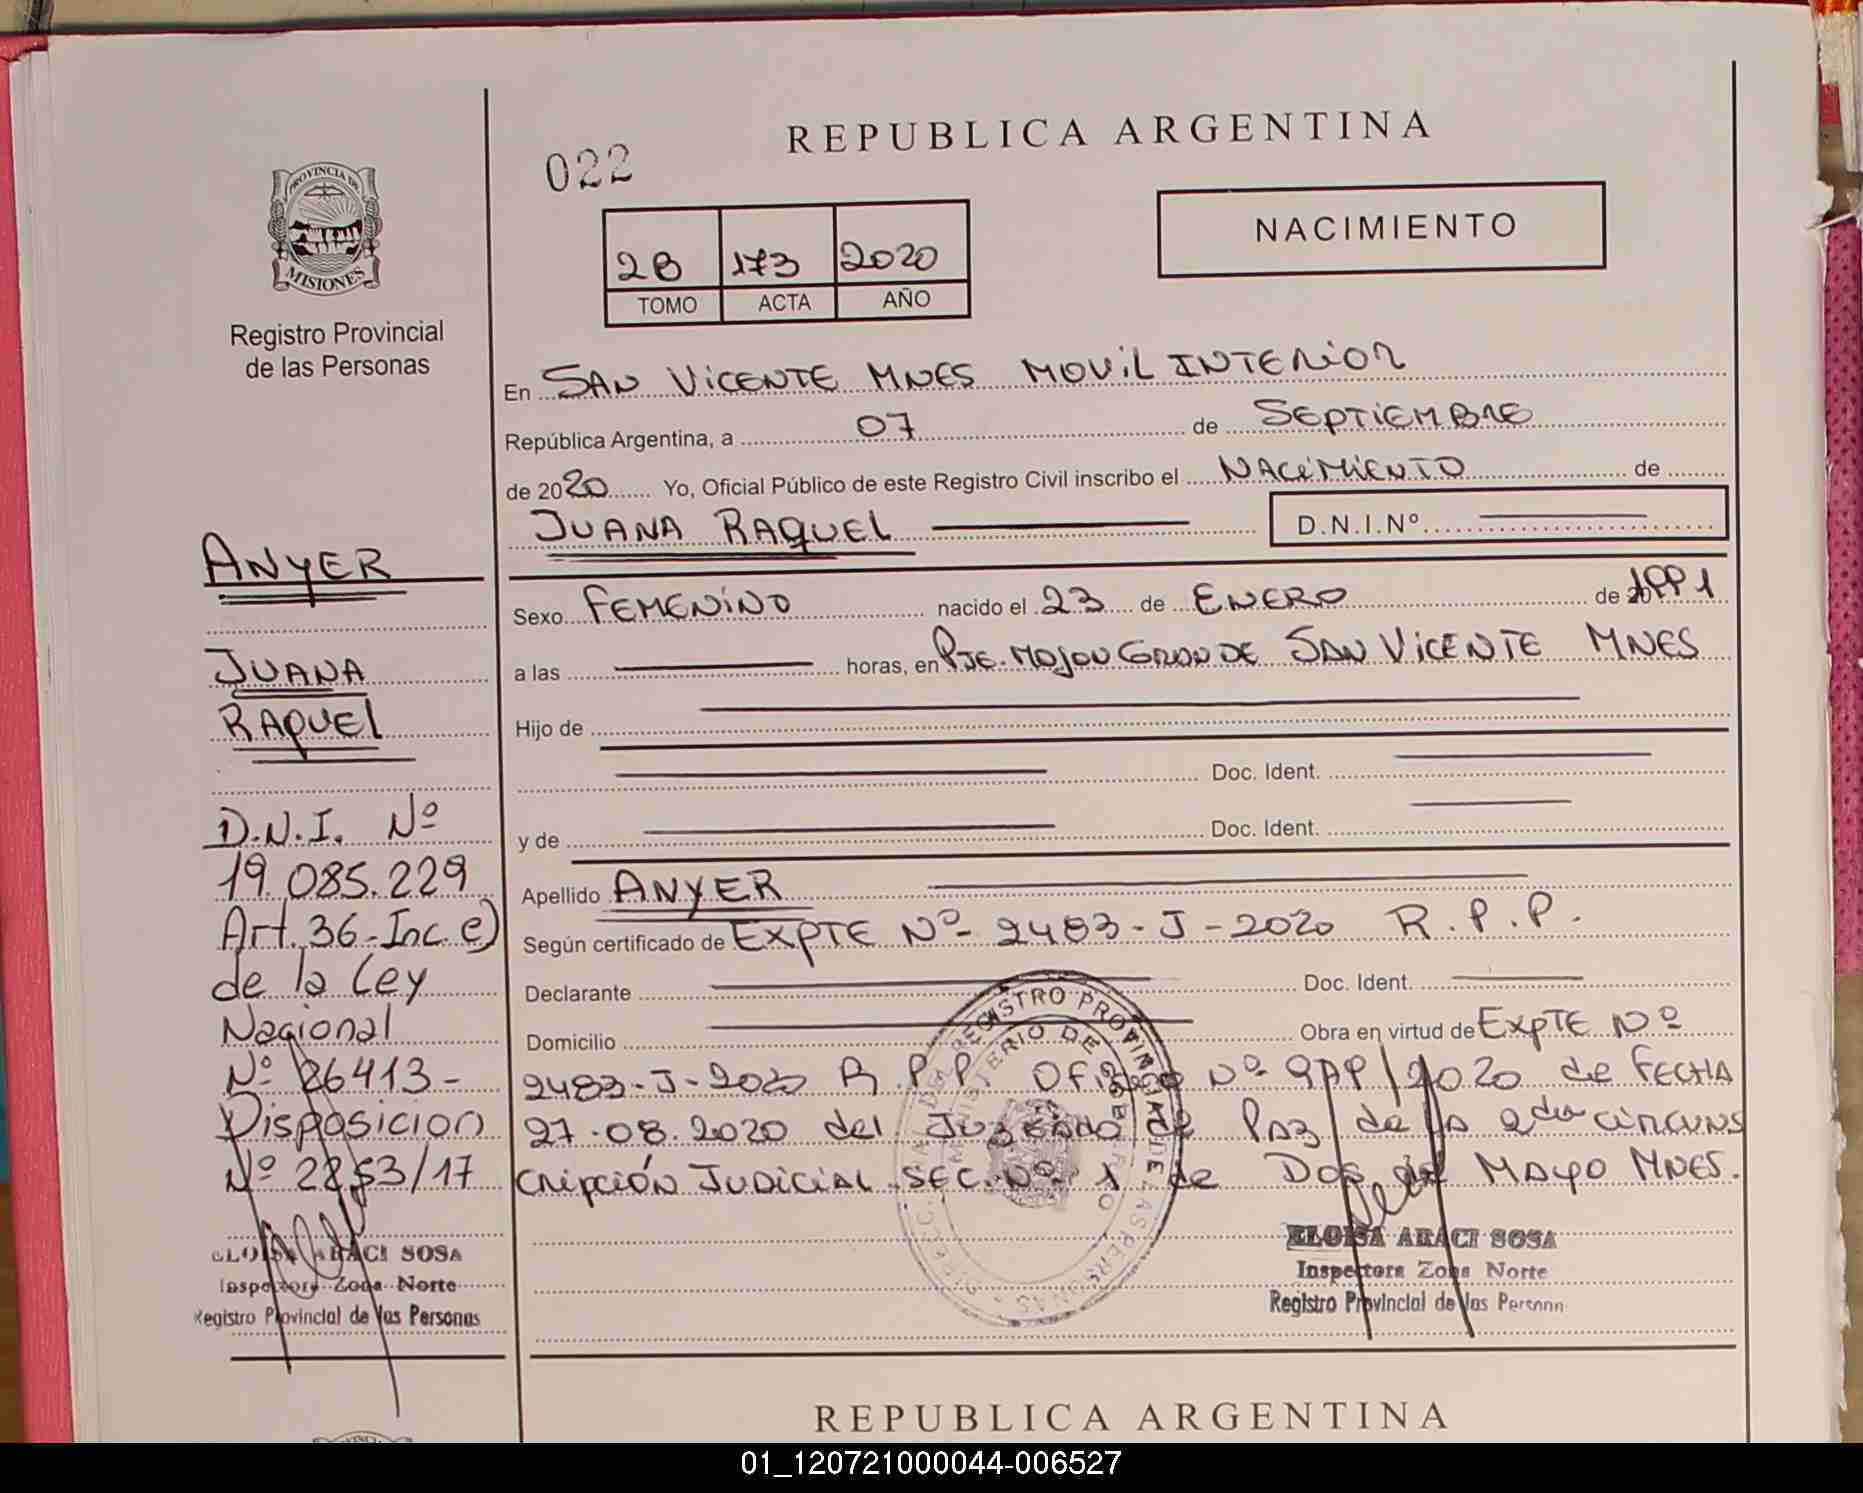 REPUBLICA ARGENTINA
022
NACIMIENTO
PROVINCIA DE
MISIONES
Registro Provincial
de las Personas
2B 173 2020
TOMO ACTA AÑO
En SAN VICENTE MNES MOVIL INTERIOR
República Argentina, a 07 de SEPTIEMBRE
de 2020 Yo, Oficial Público de este Registro Civil inscribo el NACIMIENTO de
JUANA RAQUEL D.N.I.Nº
Sexo FEMENINO nacido el 23 de ENERO de 1991
a las horas, en PJE. MOJON GRANDE SAN VICENTE MNES
Hijo de
Doc. Ident.
y de Doc. Ident.
Apellido ANYER
Según certificado de EXPTE Nº 2483-J-2020 R.P.P.
Declarante Doc. Ident.
Domicilio Obra en virtud de EXPTE Nº
2483-J-2020 R.P.P. Oficio Nº 999/2020 de FECHA
27.08.2020 del Juzgado de Paz de la 2da CIRCUNS
cripción JUDICIAL SEC. Nº 1 de Dos de MAYO MNES.
ELOISA ARACI SOSA
Inspectora Zona Norte
Registro Provincial de las Person
ANYER
JUANA
RAQUEL
D.N.I. Nº
19.085.229
Art. 36-Inc. e)
de la Ley
Nacional
Nº 26413-
Disposicion
Nº 2253/17
ELOISA ARACI SOSA
Inspectora Zona Norte
Registro Provincial de las Personas
REPUBLICA ARGENTINA
01_120721000044-006527